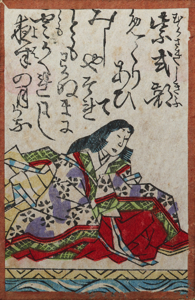 紫式部
むらさきしきぶ
めくりあひて
みしやそれ
ともわかぬまに
雲かくれにし
夜半の月